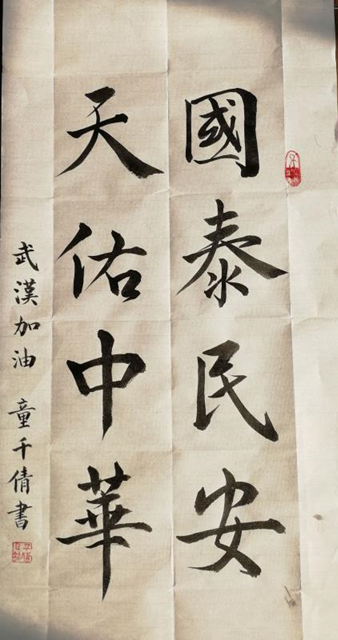 國泰民安
天佑中華
武漢加油 童千倩書